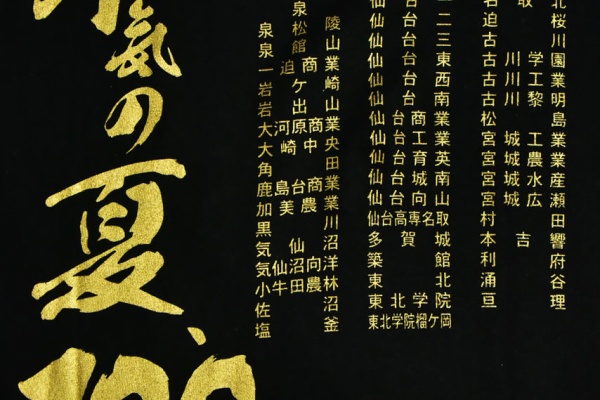 氣の夏、
泉松陵
泉館山
一迫商業
岩ケ崎
岩出山
大河原商業
大崎中央
角田
鹿島台商業
加美農業
黒川
気仙沼
気仙沼向洋
小牛田農林
佐沼
塩釜
仙台一
仙台二
仙台三
仙台東
仙台西
仙台南
仙台商業
仙台工業
仙台育英
仙台城南
仙台向山
仙台高専名取
多賀城
築館
東北
東北学院
東北学院榴ケ岡
名取北
迫桜
古川
古川学園
古川工業
古川黎明
松島
宮城工業
宮城農業
宮城水産
宮城広瀬
村田
本吉響
利府
涌谷
亘理